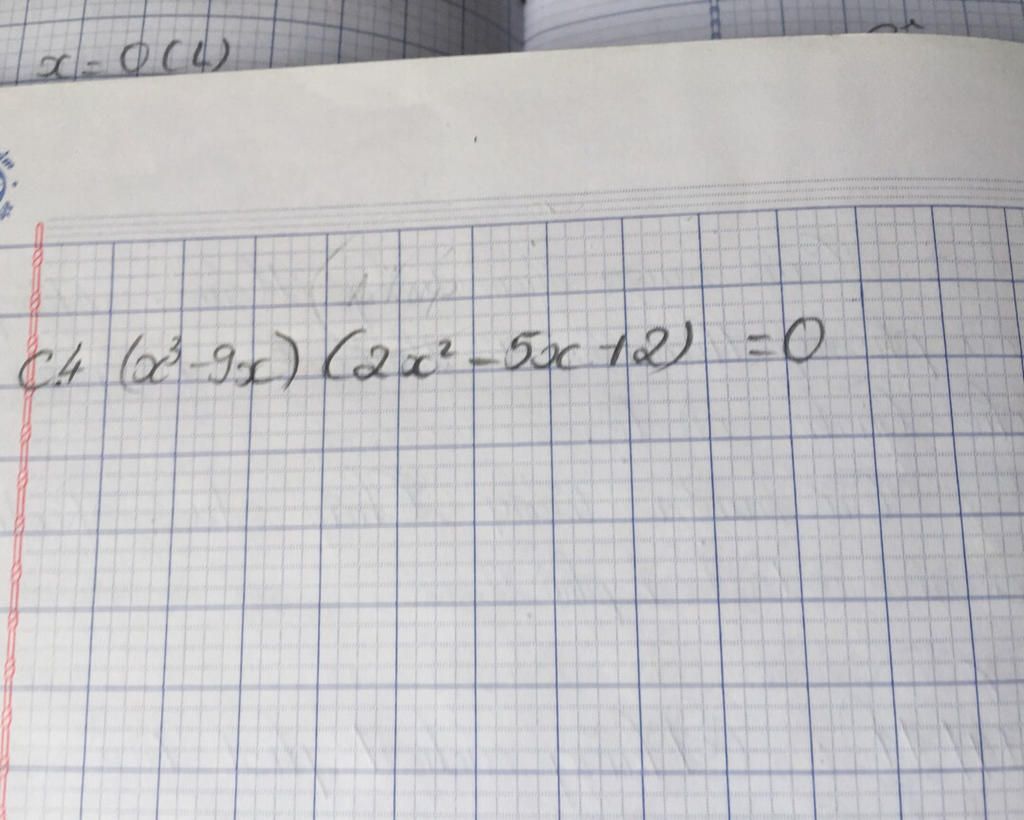 x = 0 (4)
C.4 (x³ - 9x) (2x² - 5x + 2) = 0